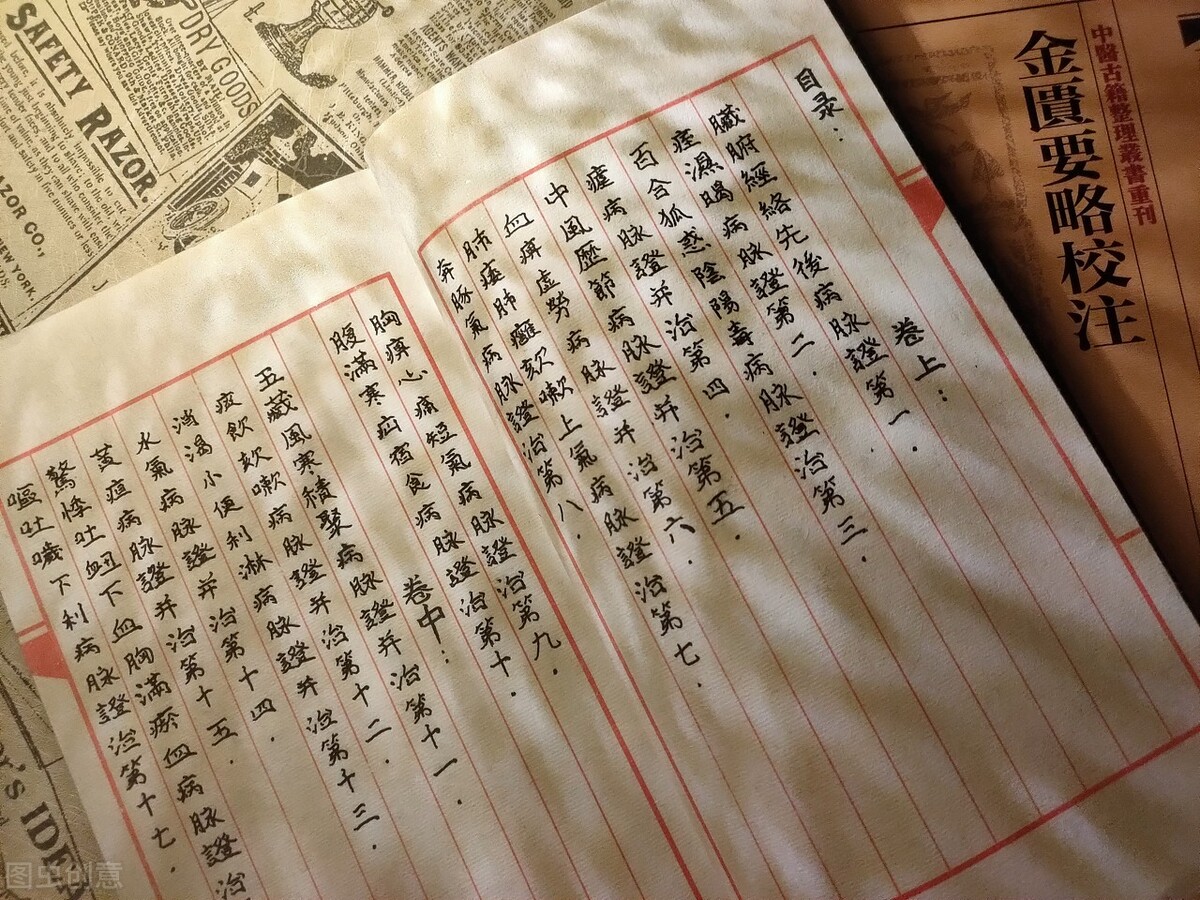 中醫古籍整理叢書重刊
金匱要略校注
目录：
卷上：
臟腑經絡先後病脉證第一．
痓濕暍病脉證第二．
百合狐惑陰陽毒病脉證治第三．
瘧病脉證并治第四．
中風歷節病脉證并治第五．
血痹虛勞病脉證并治第六．
肺痿肺癰欬嗽上氣病脉證治第七．
奔豚氣病脉證治第八．
胸痹心痛短氣病脉證治第九．
腹滿寒疝宿食病脉證治第十．
卷中：
五藏風寒積聚病脉證并治第十一．
痰飲欬嗽病脉證并治第十二．
消渴小便利淋病脉證并治第十三．
水氣病脉證并治第十四．
黃疸病脉證并治第十五．
驚悸吐衄下血胸滿瘀血病脉證治
嘔吐噦下利病脉證治第十七．
SAFETY RAZOR.
DRY GOODS
AZOR CO.,
NEW YORK.
图虫创意